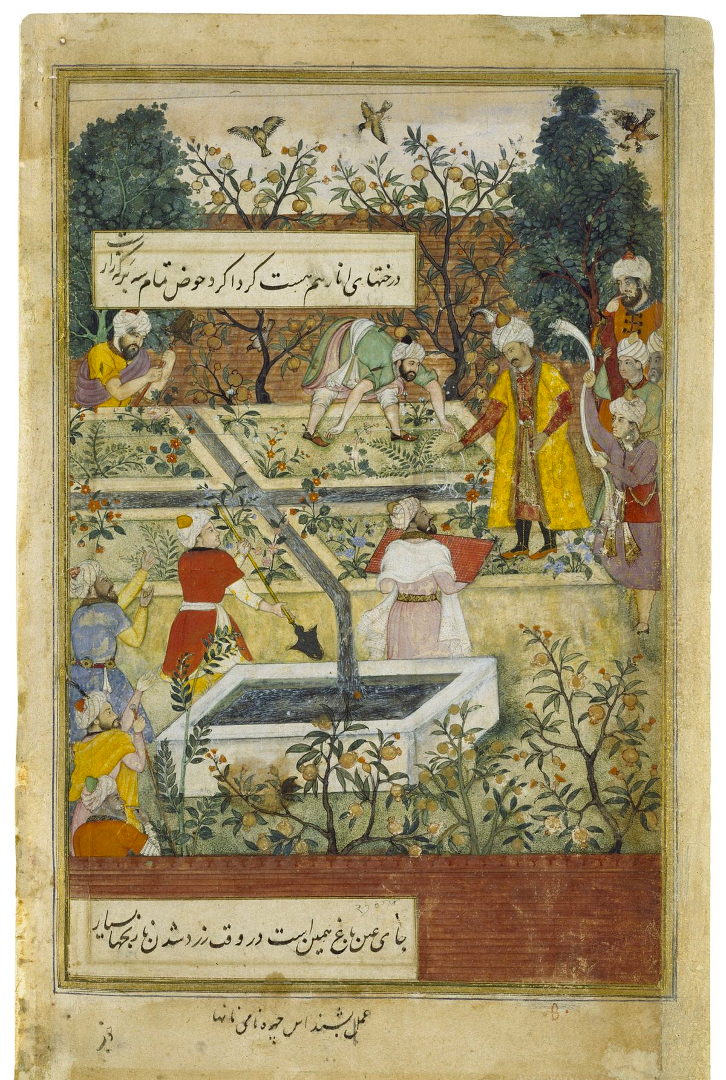 درختهای انار هم هست گرداگرد حوض تمام سه برگه زار است
جای عین باغ همین است در وقت زرد شدن نارنجها بسیار
عمل بشنداس چهره نامی نانها